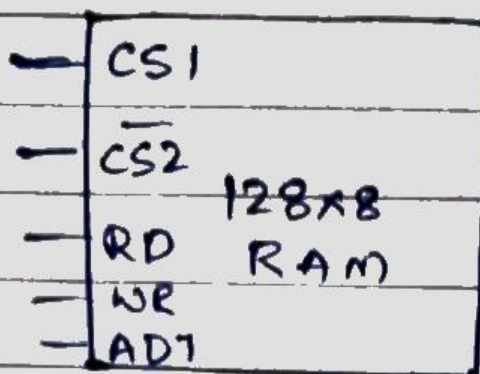 CS1
C̅S̅2
128x8
RD
RAM
WR
AD7